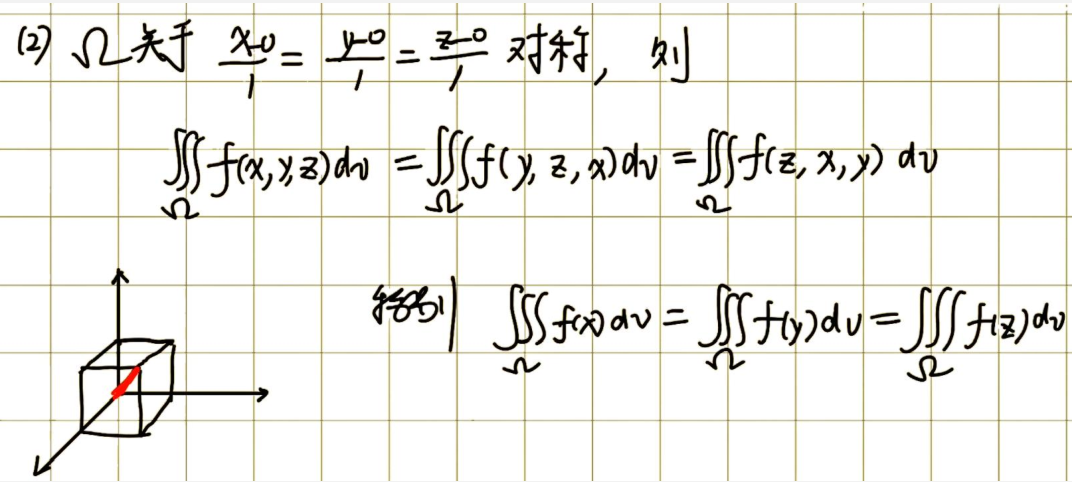 (2) Ω关于 (x-0)/1 = (y-0)/1 = (z-0)/1 对称, 则
∭_Ω f(x,y,z)dv = ∭_Ω f(y,z,x)dv = ∭_Ω f(z,x,y)dv
特别 ∭_Ω f(x)dv = ∭_Ω f(y)dv = ∭_Ω f(z)dv